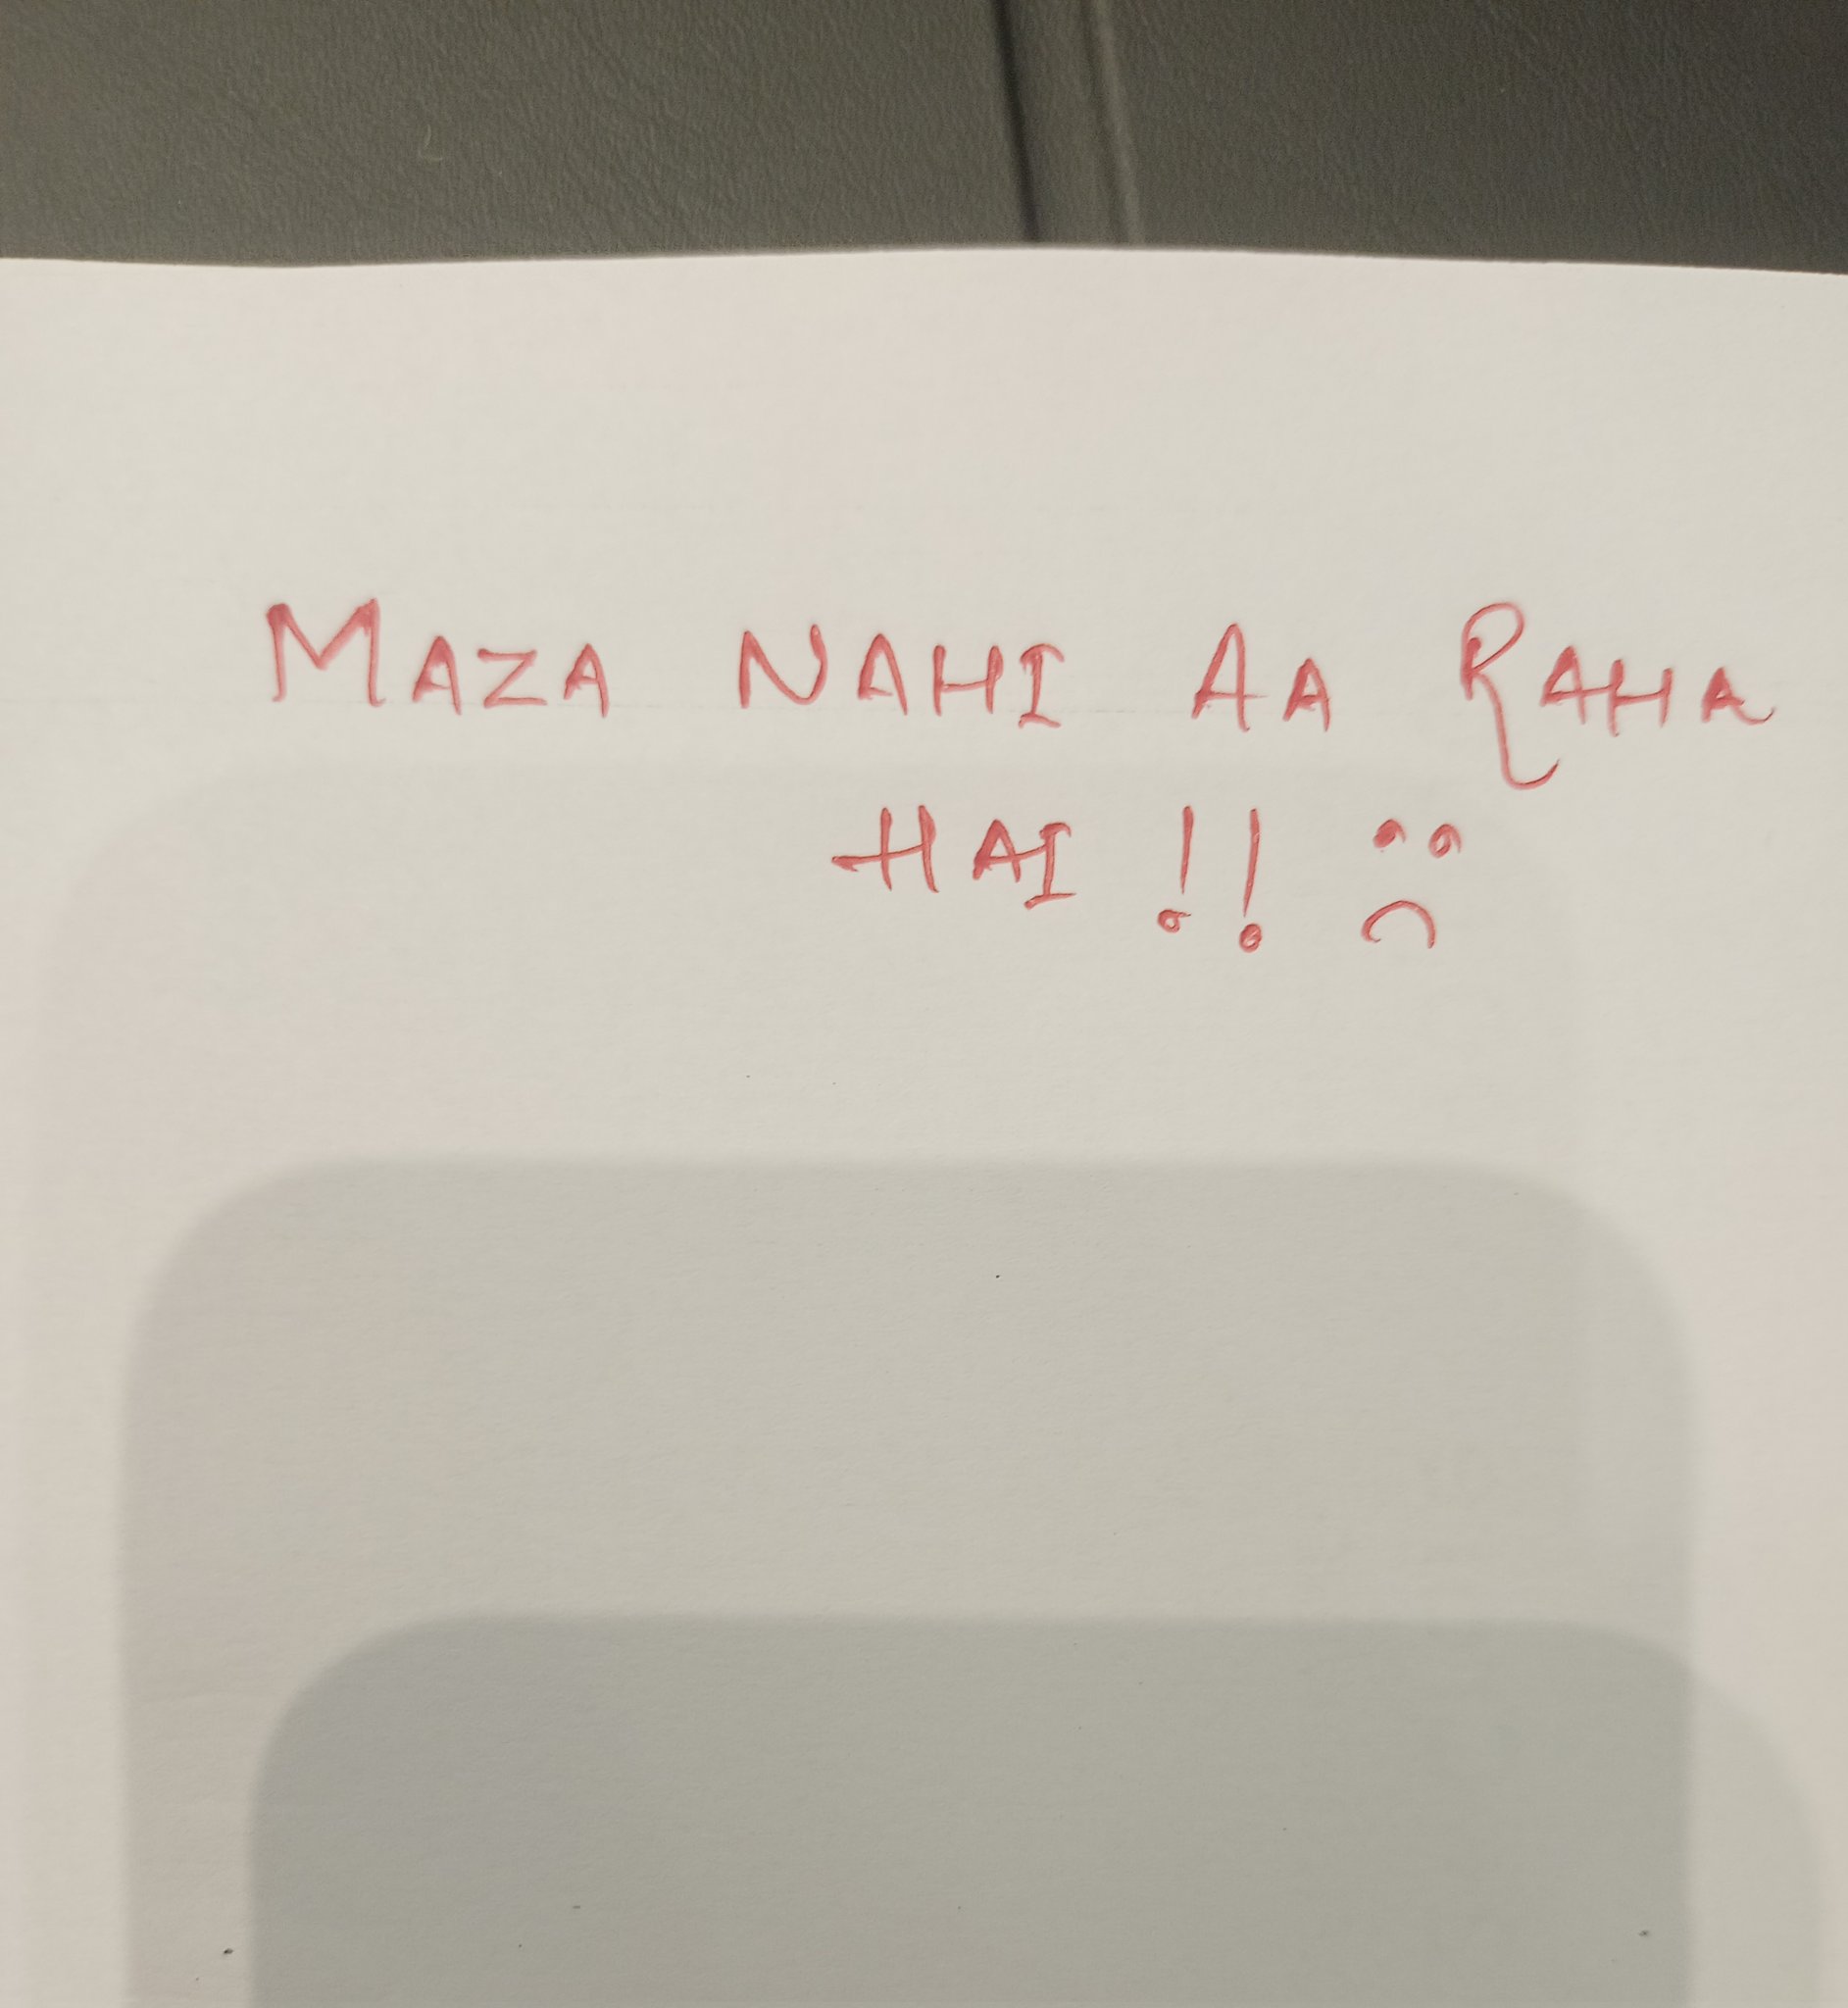 MAZA NAHI AA RAHA
HAI !! :(